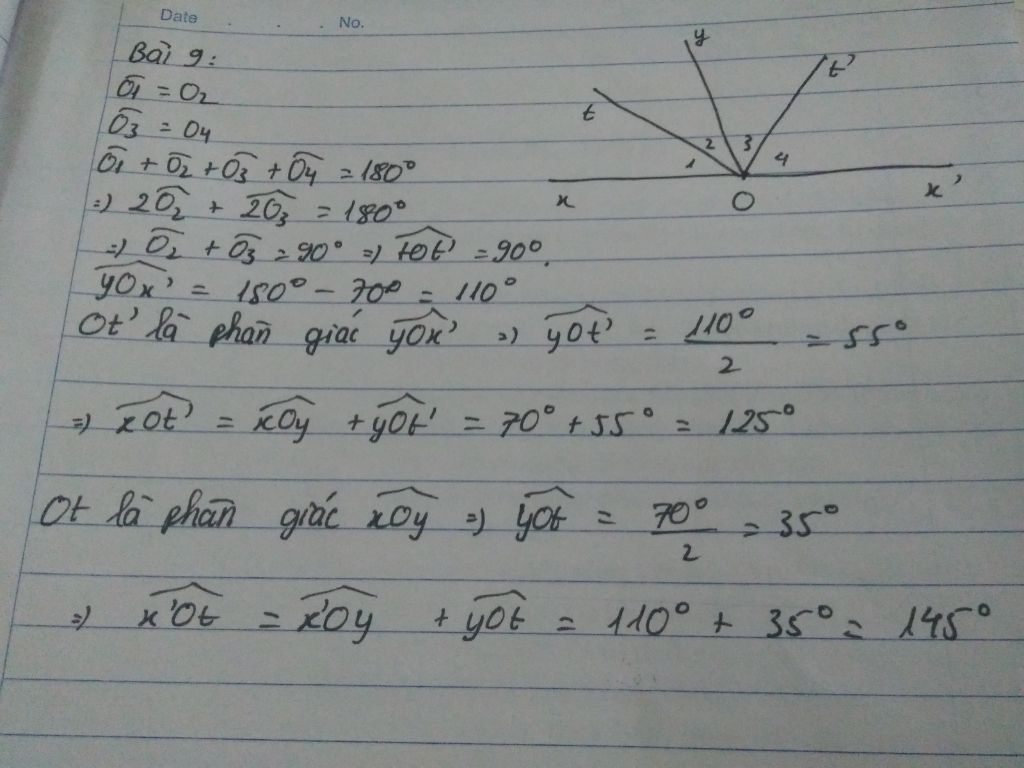 Date . . . No.
Bài 9:
Ô1 = O2
Ô3 = O4
Ô1 + Ô2 + Ô3 + Ô4 = 180°
=) 2Ô2 + 2Ô3 = 180°
=) Ô2 + Ô3 = 90° =) tOt' = 90°.
yOx' = 180° - 70° = 110°
Ot' là phân giác yOx' =) yOt' = 110°/2 = 55°
=) xOt' = xOy + yOt' = 70° + 55° = 125°
Ot là phân giác xOy =) yOt = 70°/2 = 35°
=) x'Ot = x'Oy + yOt = 110° + 35° = 145°
y
t'
t
2 3
1 4
x O x'